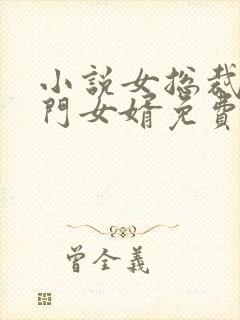 小說女总裁
門女婿免費
曾全義